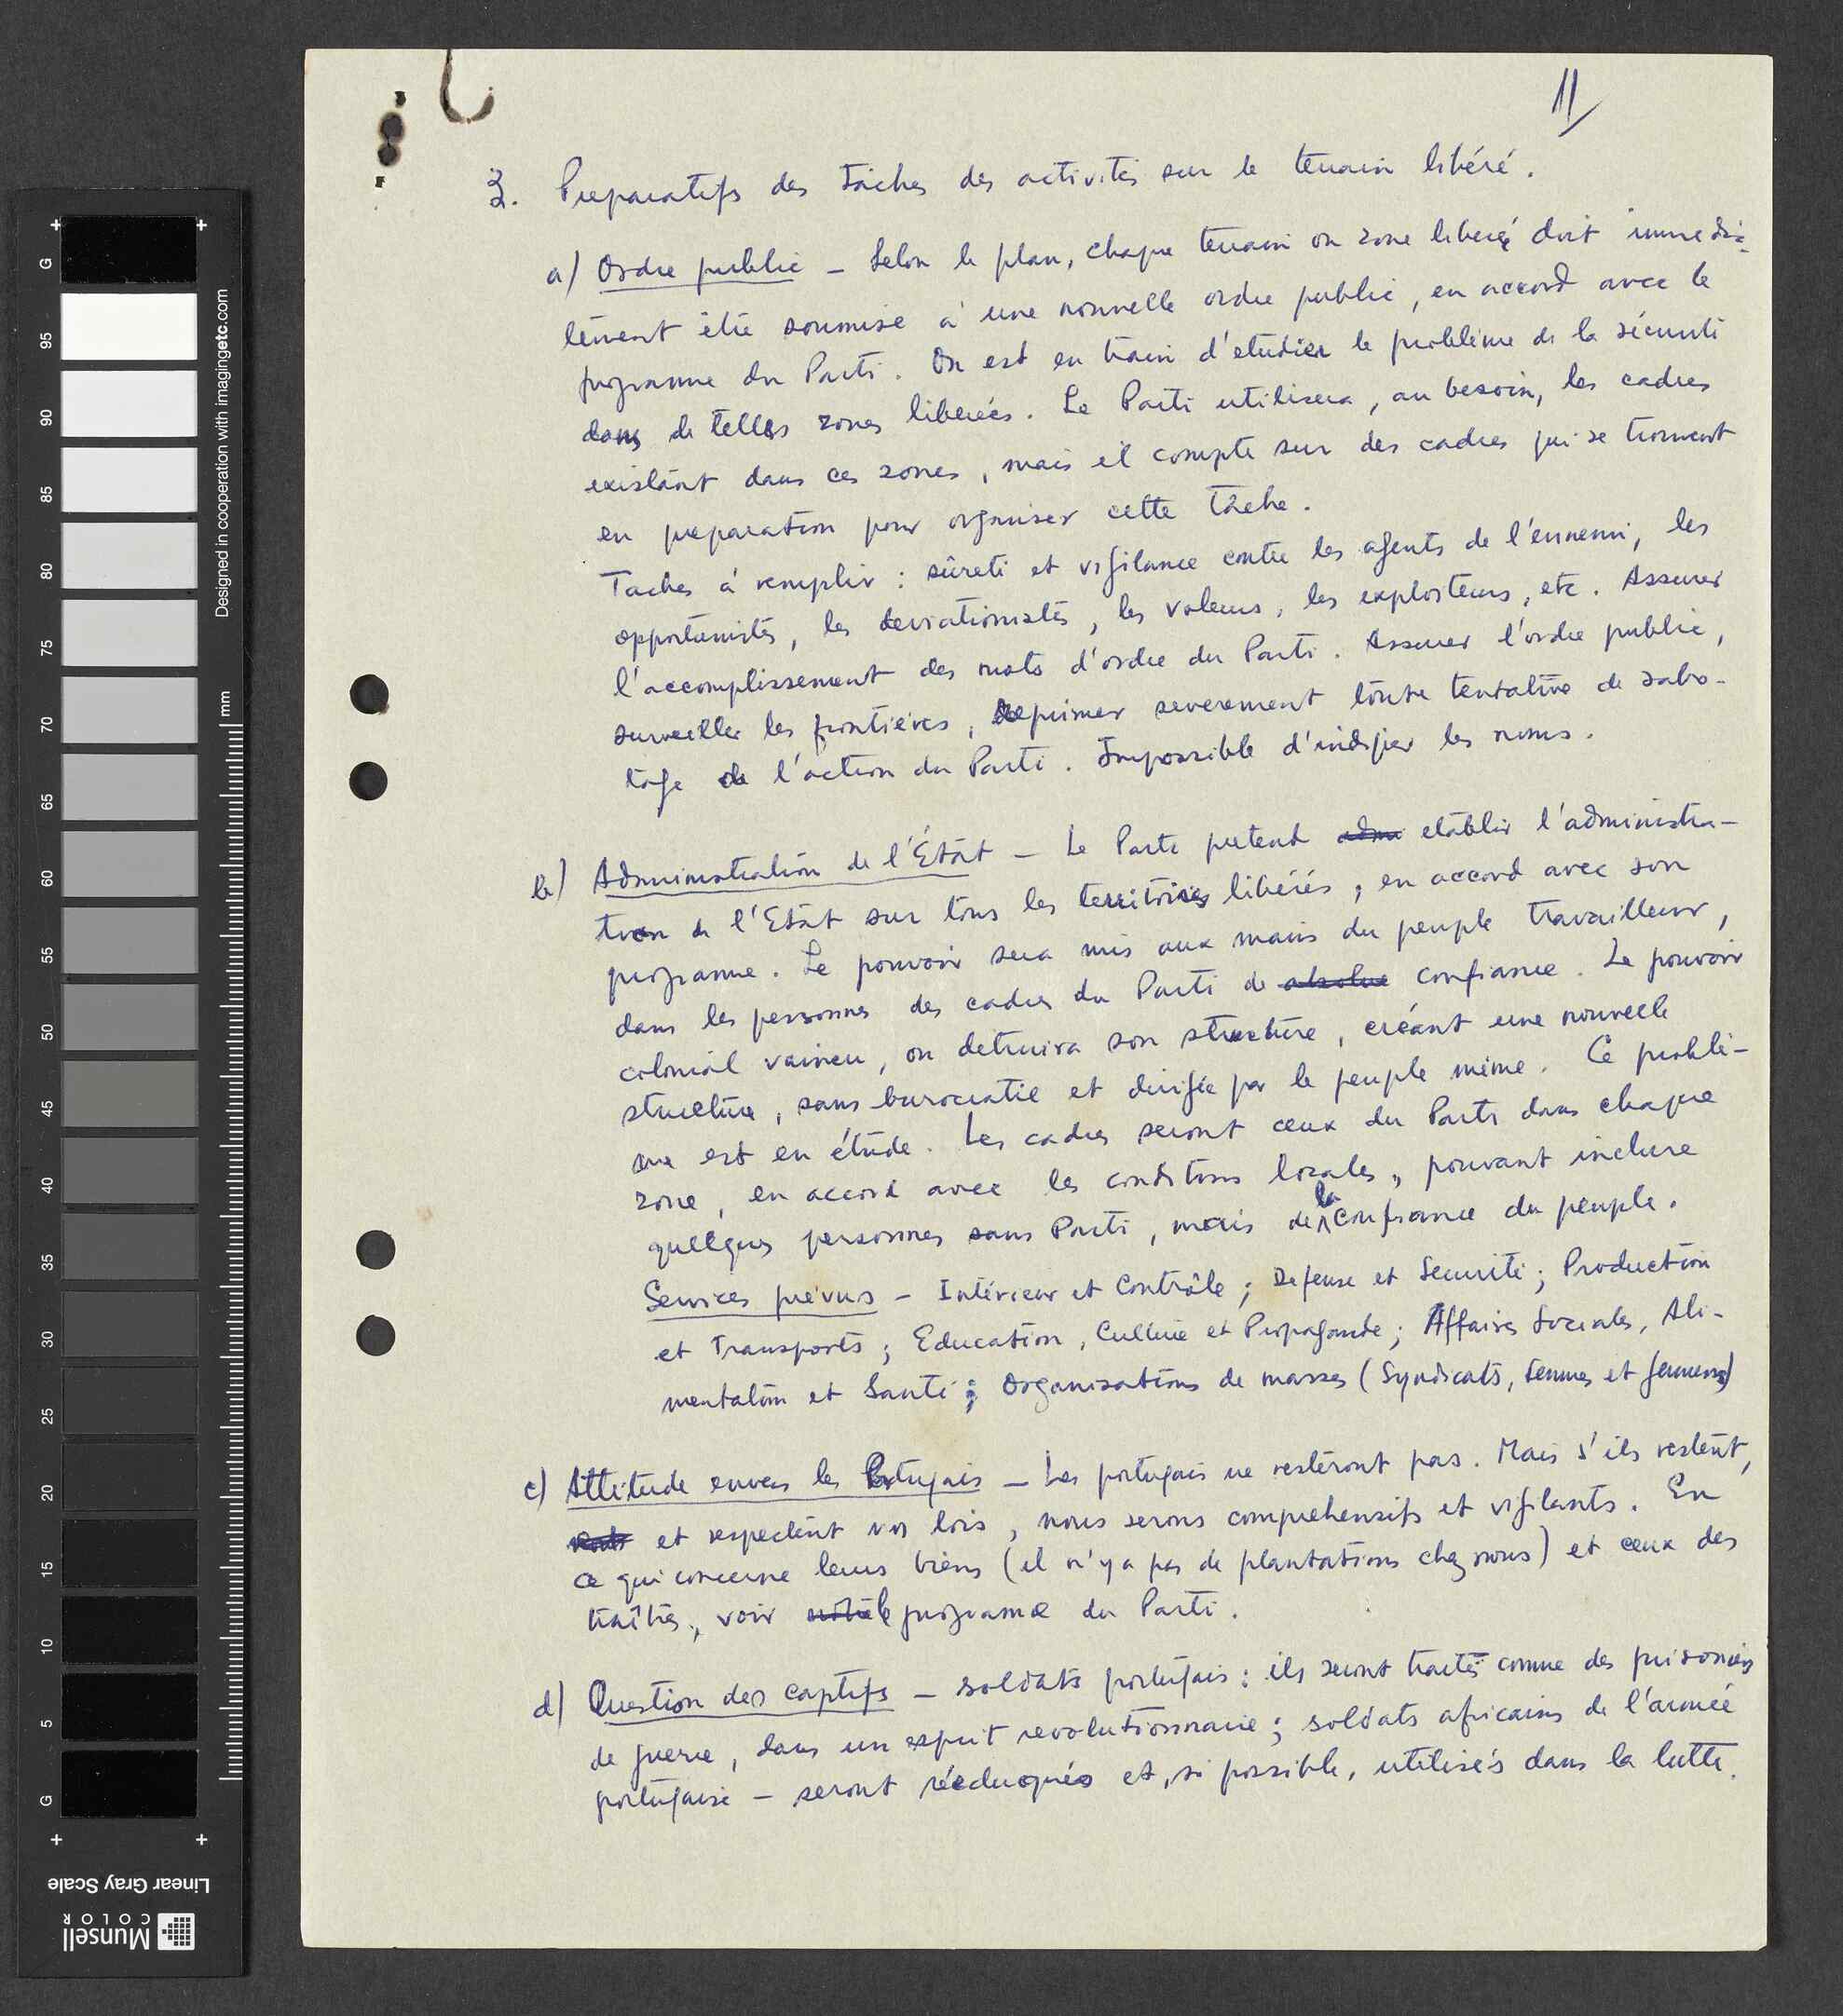 11
3. Preparatifs des tâches des activités sur le terrain libéré.
a) Ordre public — Selon le plan, chaque terrain ou zone liberée doit immedia-
tement être soumise à une nouvelle ordre public, en accord avec le
programme du Parti. On est en train d'etudier le problème de la sécurité
dans de telles zones liberées. Le Parti utilisera, au besoin, les cadres
existant dans ces zones, mais il compte sur des cadres qui se trouvent
en preparation pour organiser cette tâche.
Taches à remplir : sûreté et vigilance contre les agents de l'ennemi, les
opportunistes, les deviationnistes, les voleurs, les exploiteurs, etc. Assurer
l'accomplissement des mots d'ordre du Parti. Assurer l'ordre public,
surveiller les frontières, reprimer severement toute tentative de sabo-
tage de l'action du Parti. Impossible d'indiquer les noms.
b) Administration de l'État — Le Parti pretend adm etablir l'administra-
tion de l'Etat sur tous les territoires libérés, en accord avec son
programme. Le pouvoir sera mis aux mains du peuple travailleur,
dans les personnes des cadres du Parti de absolue confiance. Le pouvoir
colonial vaincu, on detruira son structure, créant une nouvelle
structure, sans burocratie et dirigée par le peuple même. Ce problè-
me est en étude. Les cadres seront ceux du Parti dans chaque
zone, en accord avec les conditions locales, pouvant inclure
quelques personnes sans Parti, mais de la confiance du peuple.
Services prévus — Intérieur et Contrôle ; Defense et Securité ; Production
et Transports ; Education, Culture et Propagande ; Affaires Sociales, Ali-
mentation et Santé ; Organisations de masses (Syndicats, femmes et jeunesse)
c) Attitude envers les Portugais — Les portugais ne resteront pas. Mais s'ils restent,
et respectent nos lois, nous serons comprehensifs et vigilants. En
ce qui concerne leurs biens (il n'y a pas de plantations chez nous) et ceux des
traîtres, voir le programe du Parti.
d) Question des captifs — soldats portugais : ils seront traités comme des prisoniers
de guerre, dans un esprit revolutionnaire ; soldats africains de l'armée
portugaise — seront rééduqués et, si possible, utilisés dans la lutte.
G
95
90
85
80
75
70
65
60
55
50
45
40
35
30
25
20
15
10
5
G
mm
Designed in cooperation with imagingetc.com
Linear Gray Scale
Munsell
COLOR